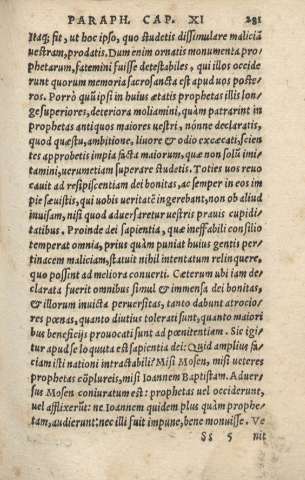 PARAPH. CAP. XI 281
Itaq; fit, ut hoc ipso, quo studetis dissimulare maliciã
uestram, prodatis. Dum enim ornatis monumenta pro
phetarum, fatemini fuisse detestabiles, qui illos occide
runt quorum memoria sacrosancta est apud uos poste
ros. Porrò quũ ipsi in huius ætatis prophetas illis lon
ge superiores, deteriora moliamini, quàm patrarint in
prophetas antiquos maiores uestri, nónne declaratis,
quod quæstu, ambitione, liuore & odio excæcati, scien
tes approbetis impia facta maiorum, quæ non solũ imi
tamini, uerumetiam superare studetis. Toties uos reuo
cauit ad resipiscentiam dei bonitas, ac semper in eos im
pie sæuistis, qui uobis ueritatẽ ingerebant, non ob aliud
inuisam, nisi quod aduersaretur uestris prauis cupidi
tatibus. Proinde dei sapientia, quæ ineffabili consilio
temperat omnia, prius quàm puniat huius gentis per
tinacem maliciam, statuit nihil intentatum relinquere,
quo possint ad meliora conuerti. Cæterum ubi iam de
clarata fuerit omnibus simul & immensa dei bonitas,
& illorum inuicta peruersitas, tanto dabunt atrocio
res pœnas, quanto diutius tolerati sunt, quanto maiori
bus beneficijs prouocati sunt ad pœnitentiam. Sic igi
tur apud se locuta est sapientia dei: Quid amplius fa
ciam isti nationi intractabili? Misi Mosen, misi ueteres
prophetas cõplureis, misi Ioannem Baptistam. Aduer
sus Mosen coniuratum est: prophetas uel occiderunt,
uel afflixerũt: ne Ioannem quidem plus quàm prophe
tam, audierunt: nec illi fuit impune, bene monuisse. Ve
Ss 5 nit